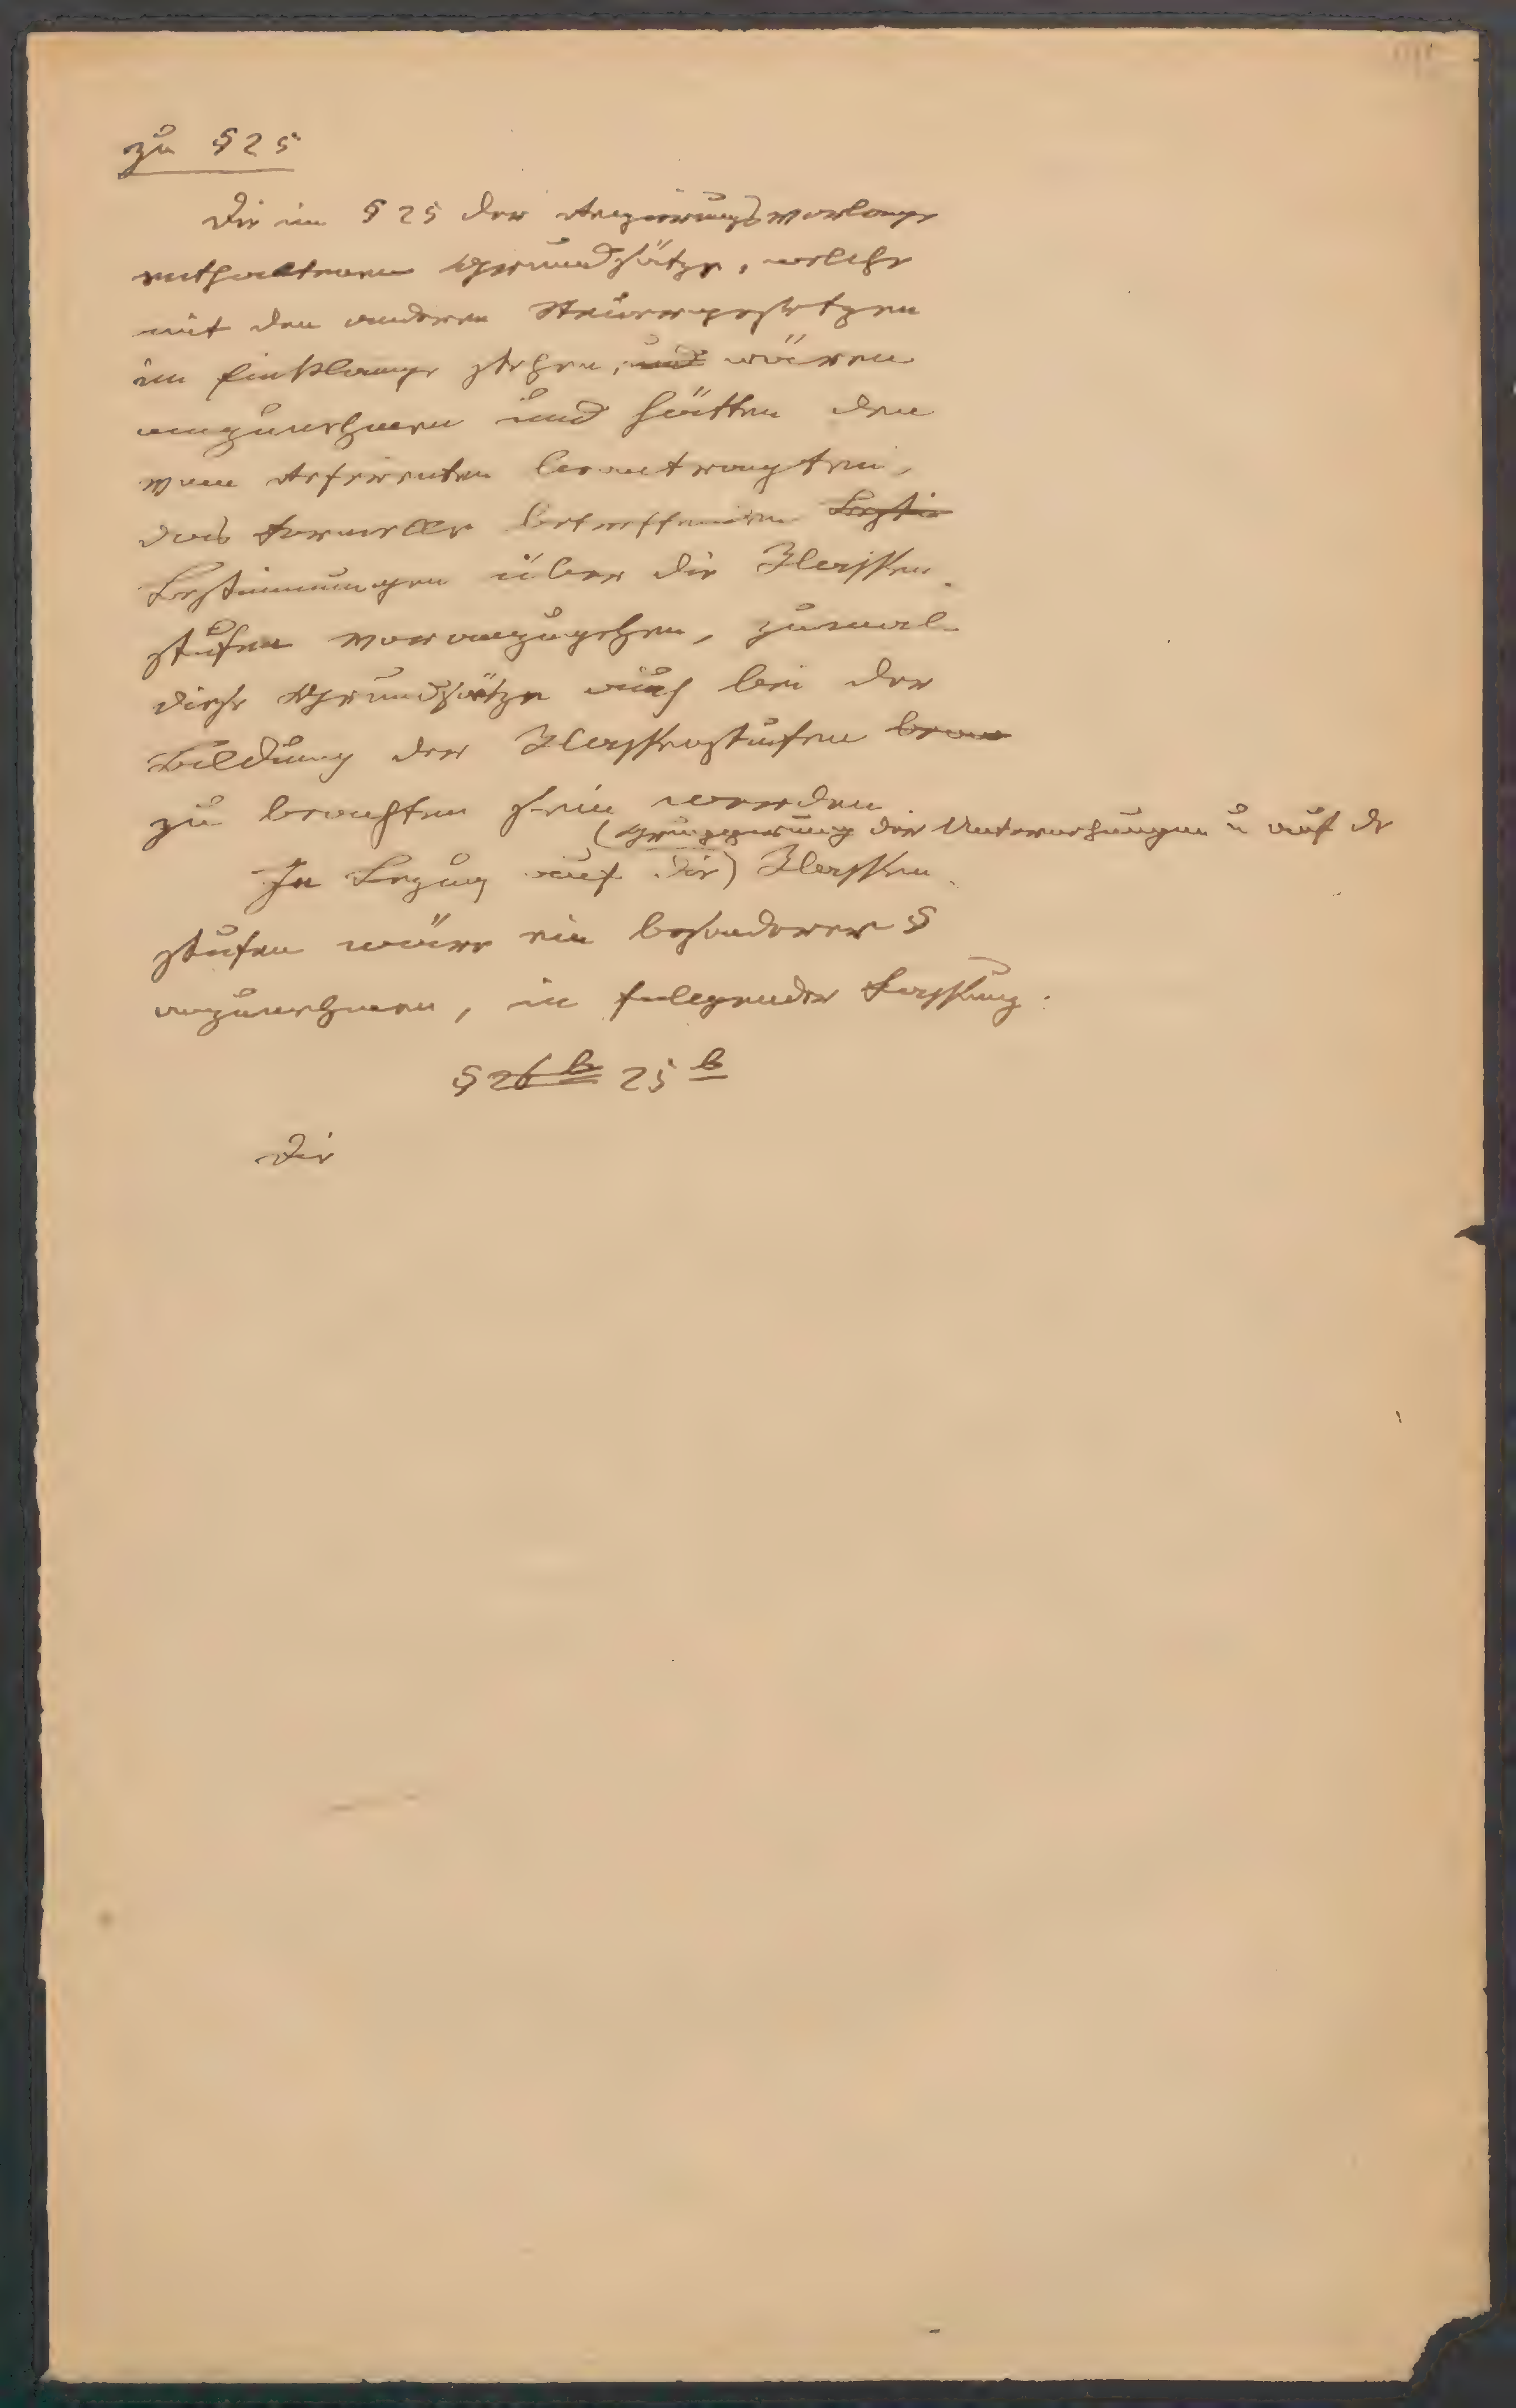 zu § 25
Die im § 25 der Regierungsvorlage
enthaltenen Grundsätze, welche
mit den anderen Steuergesetzen
im Einklange stehen, und wären
anzunehmen und hätten den
vom Referenten beantragten,
das formelle betreffenden Bestim
Bestimmungen über die Klassen-
stufen voranzugehen, zumal
diese Grundsätze auch bei der
Bildung der Klassenstufen
zu beachten sein werden.
(Gruppierung der Unternehmungen u auf d
In Bezug auf die) Klassen-
stufen wäre ein besonderer §
anzunehmen, in folgender Fassung:
§ 26 b 25 b
Die